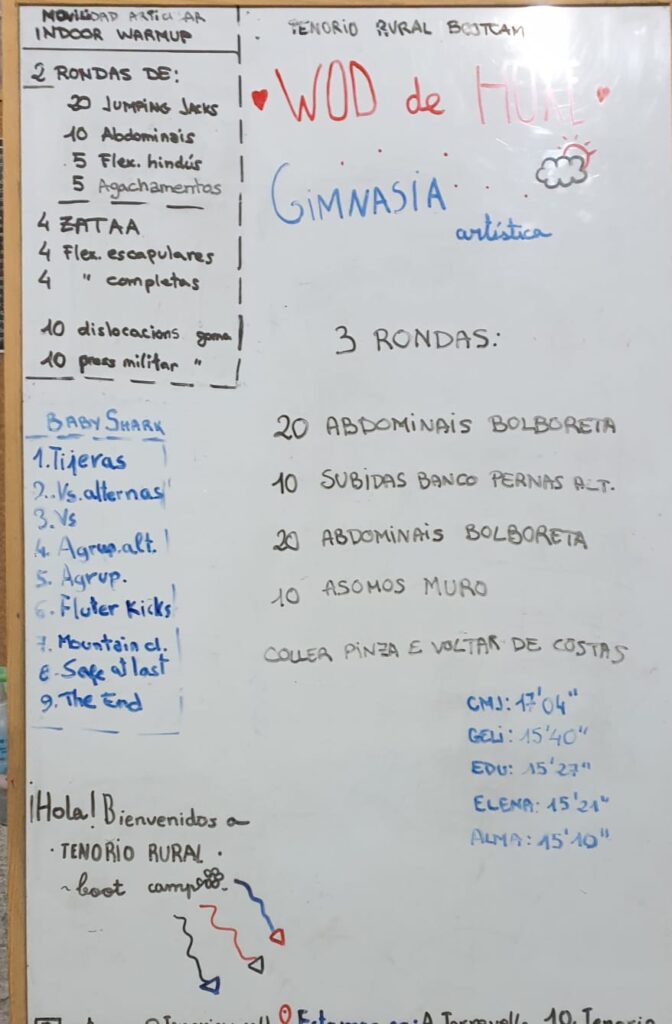 MOVILIDAD ARTICULAR
INDOOR WARMUP
2 RONDAS DE:
20 JUMPING JACKS
10 Abdominais
5 Flex. hindús
5 Agachamentos
4 ZATAA
4 Flex. escapulares
4 " completas
10 dislocacions goma
10 press militar "
BABY SHARK
1. Tijeras
2. Vs. alternas
3. Vs
4. Agrup. alt.
5. Agrup.
6. Fluter Kicks
7. Mountain cl.
8. Safe at last
9. The End
¡Hola! Bienvenidos a
· TENORIO RURAL ·
~ boot camp
TENORIO RURAL BOOTCAM
WOD de
GIMNASIA
artística
3 RONDAS:
20 ABDOMINAIS BOLBORETA
10 SUBIDAS BANCO PERNAS ALT.
20 ABDOMINAIS BOLBORETA
10 ASOMOS MURO
COLLER PINZA E VOLTAR DE COSTAS
CMJ: 17'04"
GELI: 15'40"
EDU: 15'27"
ELENA: 15'21"
ALMA: 15'10"
Estamos en: A 10. Tenorio